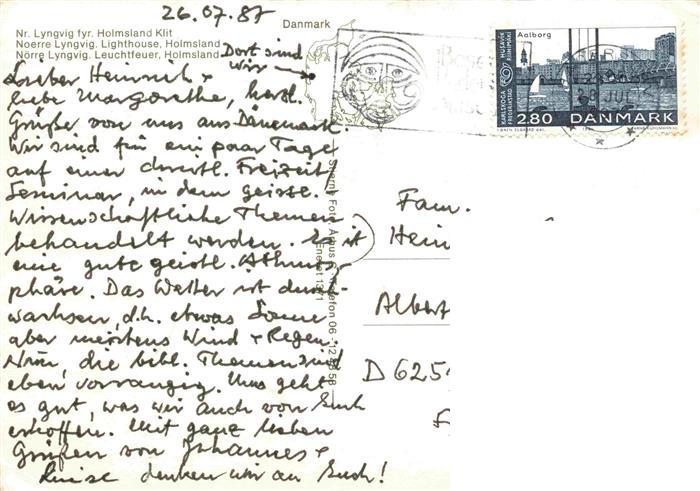 26.07.87
Danmark
Nr. Lyngvig fyr. Holmsland Klit
Noerre Lyngvig. Lighthouse, Holmsland
Nörre Lyngvig. Leuchtfeuer, Holmsland
Dort sind
wir
Lieber Heinrich +
liebe Margarethe, herzl.
Grüße von uns aus Dänemark.
Wir sind für ein paar Tage
auf einer christl. Freizeit/
Seminar, in dem geistl.
Wissenschaftliche Themen
behandelt werden. Es ist
eine gute geistl. Athmos-
phäre. Das Wetter ist durch-
wachsen, d.h. etwas Sonne
aber meistens Wind + Regen.
Nun, die bibl. Themen sind
eben vorrangig. Uns geht
es gut, was wir auch von Euch
erhoffen. Mit ganz lieben
Grüßen von Johannes +
Luise denken wir an Euch!
Stjerne Foto, Telefon 06 - 12
Eneret 1371
Aalborg
HUSAVIK
RIIHIMÄKI
KARLSKOGA
FREDERIKSTAD
2.80 DANMARK
Fam.
Hein
Albert
D 625